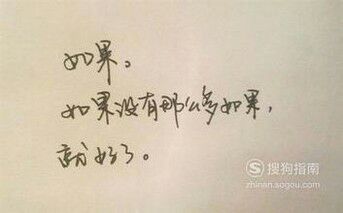 如果。
如果没有那么多如果，
就好了。
搜狗指南
zhinan.sogou.com